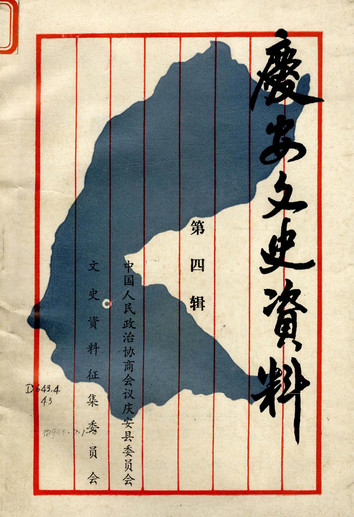 慶安文史資料
第四辑
中国人民政治协商会议庆安县委员会
文史资料征集委员会
D649.4
43